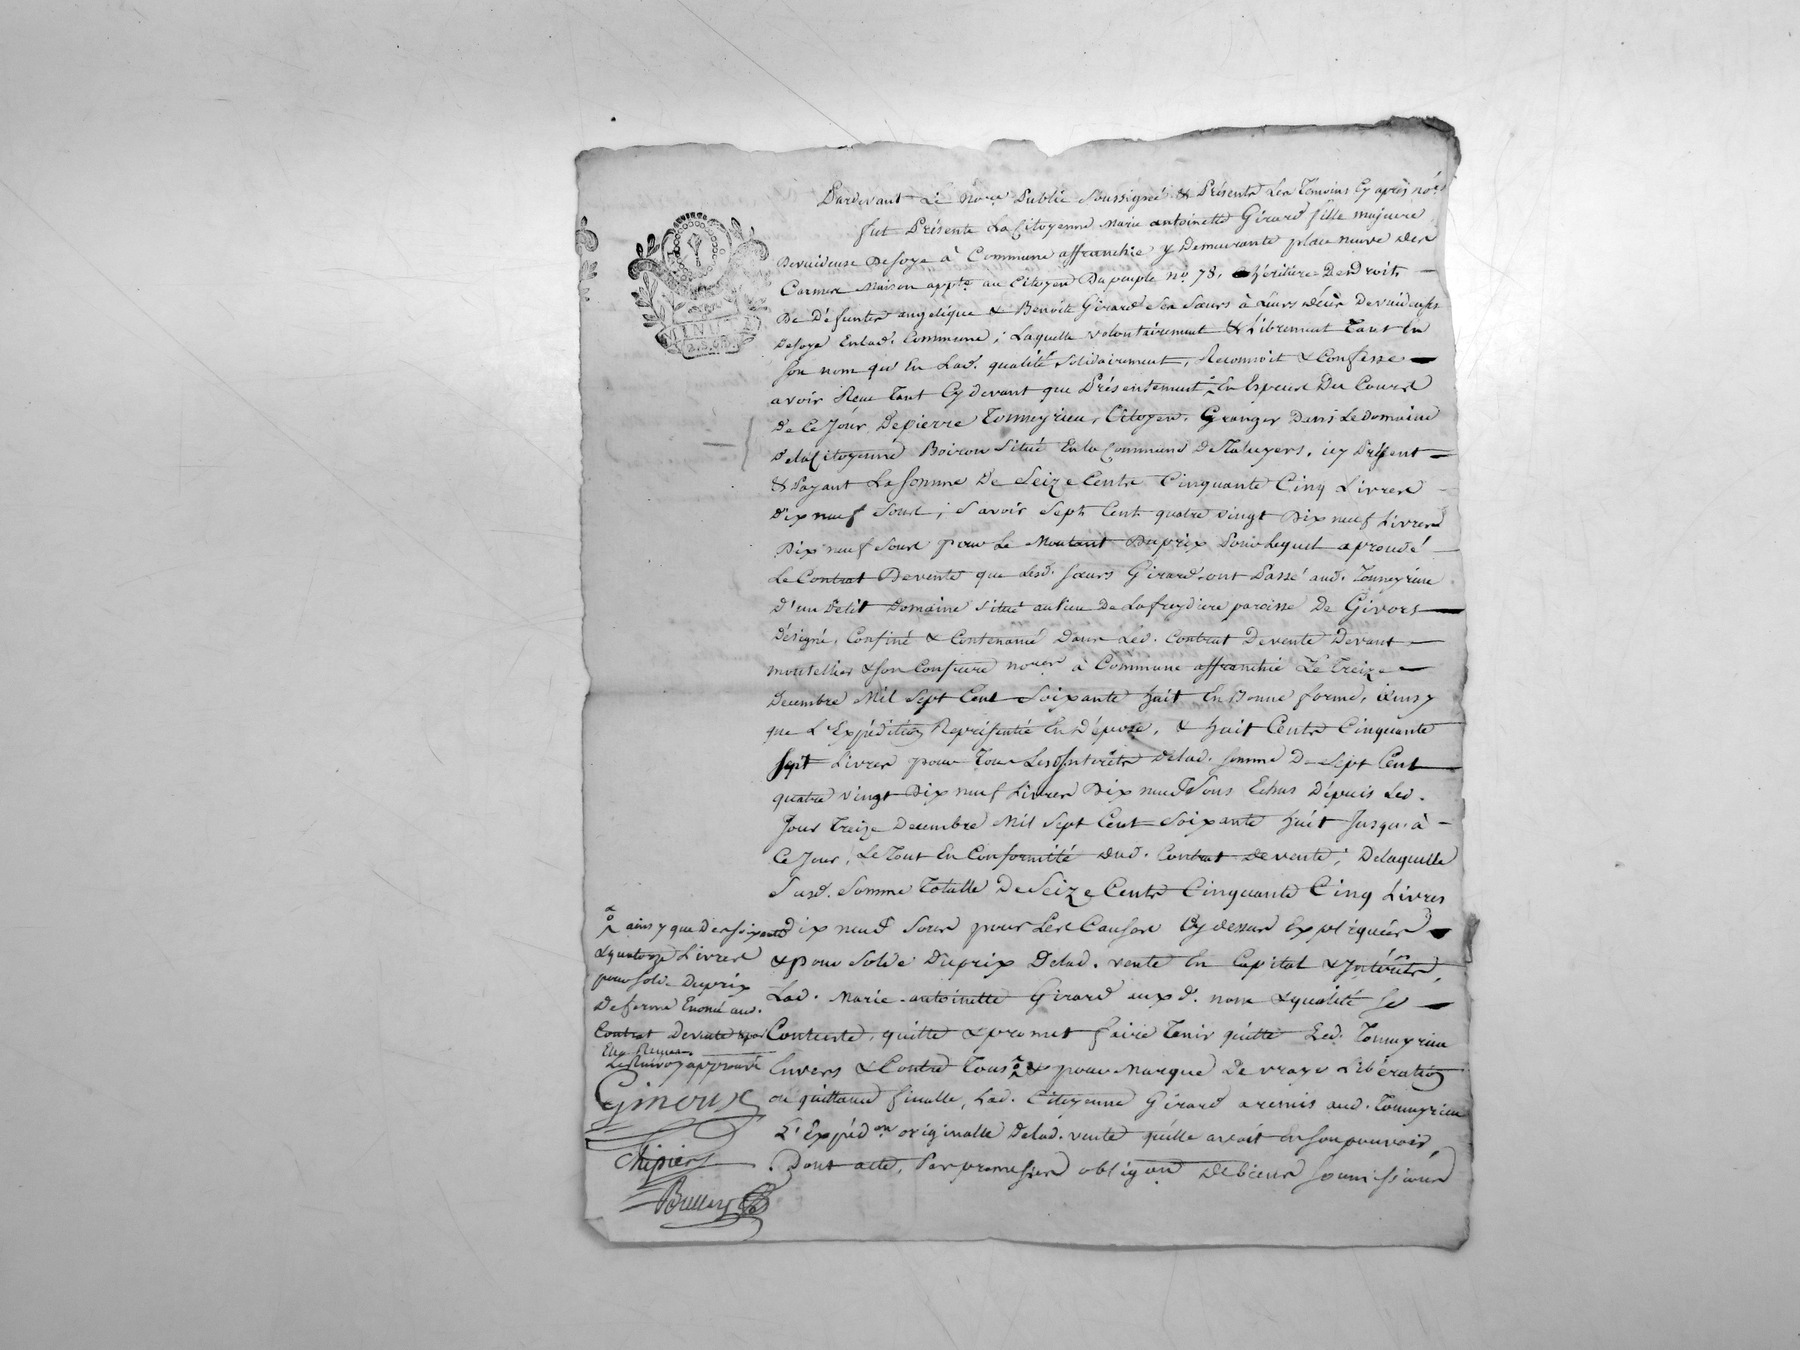 Pardevant Le No.re Public Soussigné & Présents Les Temoins Cy après nés
fut Présente La Citoyenne Marie antoinette Girard fille majeure
Devuideuse De soye à Commune affranchie y Demeurante place neuve des
Carmes Maison appte. au Citoyen Dupeuple no. 78. héritiere De Droits
De Défuntes angélique & Benoite Girard Ses Sœurs à Leurs décès Devuideuses
De soye En lad. Commune; Laquelle volontairement & Librement Tant En
Son nom qu'En Lad. qualité Solidairement, Reconnoit & Confesse
avoir Reçu Tant Cy devant que Présentement En Especes Du Cours
De Ce Jour, De pierre Tonneyrieu, Citoyen, Granger Dans Le domaine
De la Citoyenne Boiron Situé En la Commune De Taluyers, icy Présent
& Payant La Somme De Seize Cents Cinquante Cinq Livres
Dix neuf Sous; Savoir Sept Cent quatre vingt Dix neuf Livres
Dix neuf Sous pour Le Montant Du prix Pour Lequel a procédé
Le Contrat De vente que Lesd. sœurs Girard ont Passé aud. Tonneyrieu
D'un Petit Domaine Situé au Lieu De La freydiere paroisse De Givors
Désigné, Confiné & Contenancé Dans Led. Contrat De vente Devant
montellier & son Confrere no.res à Commune affranchie Le Treize
Decembre Mil Sept Cent Soixante huit En Bonne forme, ainsy
que L'Expédition Représentée En Dépose, & huit Cents Cinquante
Sept Livres pour Tous Les Intérêts De lad. Somme De Sept Cent
quatre vingt Dix neuf Livres Dix neuf Sous Echus Dépuis Led.
Jour Treize Decembre Mil Sept Cent Soixante huit Jusqu'à
Ce Jour, Le Tout En Conformité Dud. Contrat De vente; De laquelle
Susd. Somme Totalle De Seize Cents Cinquante Cinq Livres
Dix neuf Sous pour Les Causes Cy dessus Expliquées
& pour Solde Du prix De lad. vente En Capital & Intérêts
Lad. Marie antoinette Girard auxd. nom & qualité Se
Contente, quitte & promet faire Tenir quitte Led. Tonneyrieu
Envers & Contre Tous & pour Marque De vraye Libération
ou quittance finalle, Lad. Citoyenne Girard a remis aud. Tonneyrieu
L'Expédon. originalle De lad. vente qu'elle avoit En son pouvoir,
Dont acte, Par promesses obligaon. De biens Soumissions
ainsy que De soixante
& quatorze Livres
pour Solde Du prix
De ferme Enoncé aud.
Contrat De vente
Le Renvoy approuvé
Ginoux
Chipier